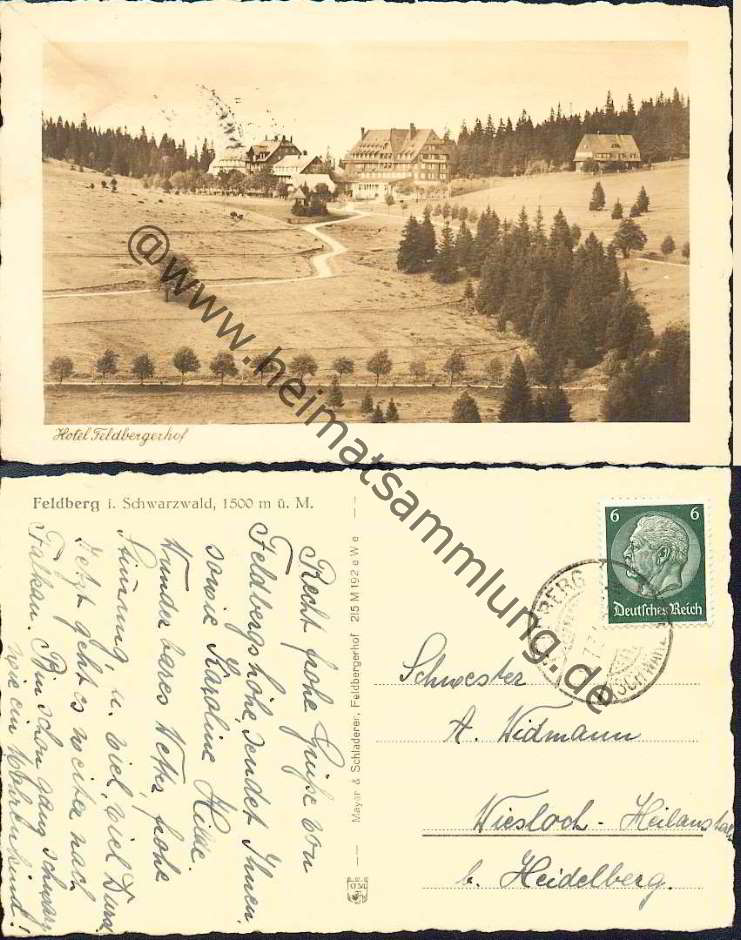 Hotel Feldbergerhof
@www.heimatsammlung.de
Feldberg i. Schwarzwald, 1500 m ü. M.
Recht frohe Grüße von
Feldbergshöhe, sendet Ihnen,
sowie Karoline Hilde.
Wunderbares Wetter, frohe
Stimmung, u. viel, viel Durst
Jetzt geht es weiter nach
Falkau. Bin schon ganz schwarz
wie ein Mohrenkind!
Mayer & Schladerer, Feldbergerhof 215 M 192 e W e
6 6
Deutsches Reich
BERG
SCHWARZ
Schwester
A. Widmann
Wiesloch - Heilanstalt
b. Heidelberg.